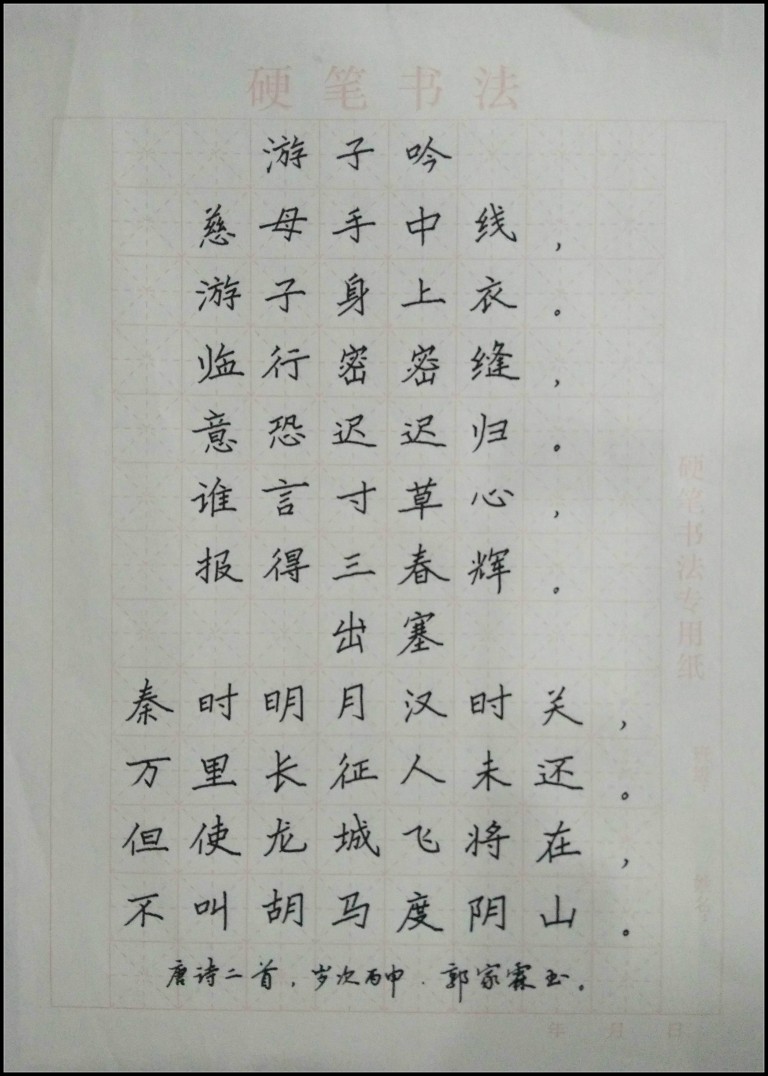 硬笔书法
游子吟
慈母手中线，
游子身上衣。
临行密密缝，
意恐迟迟归。
谁言寸草心，
报得三春辉。
出塞
秦时明月汉时关，
万里长征人未还。
但使龙城飞将在，
不叫胡马度阴山。
唐诗二首，岁次丙申．郭家霖书。
硬笔书法专用纸
姓名
年 月 日